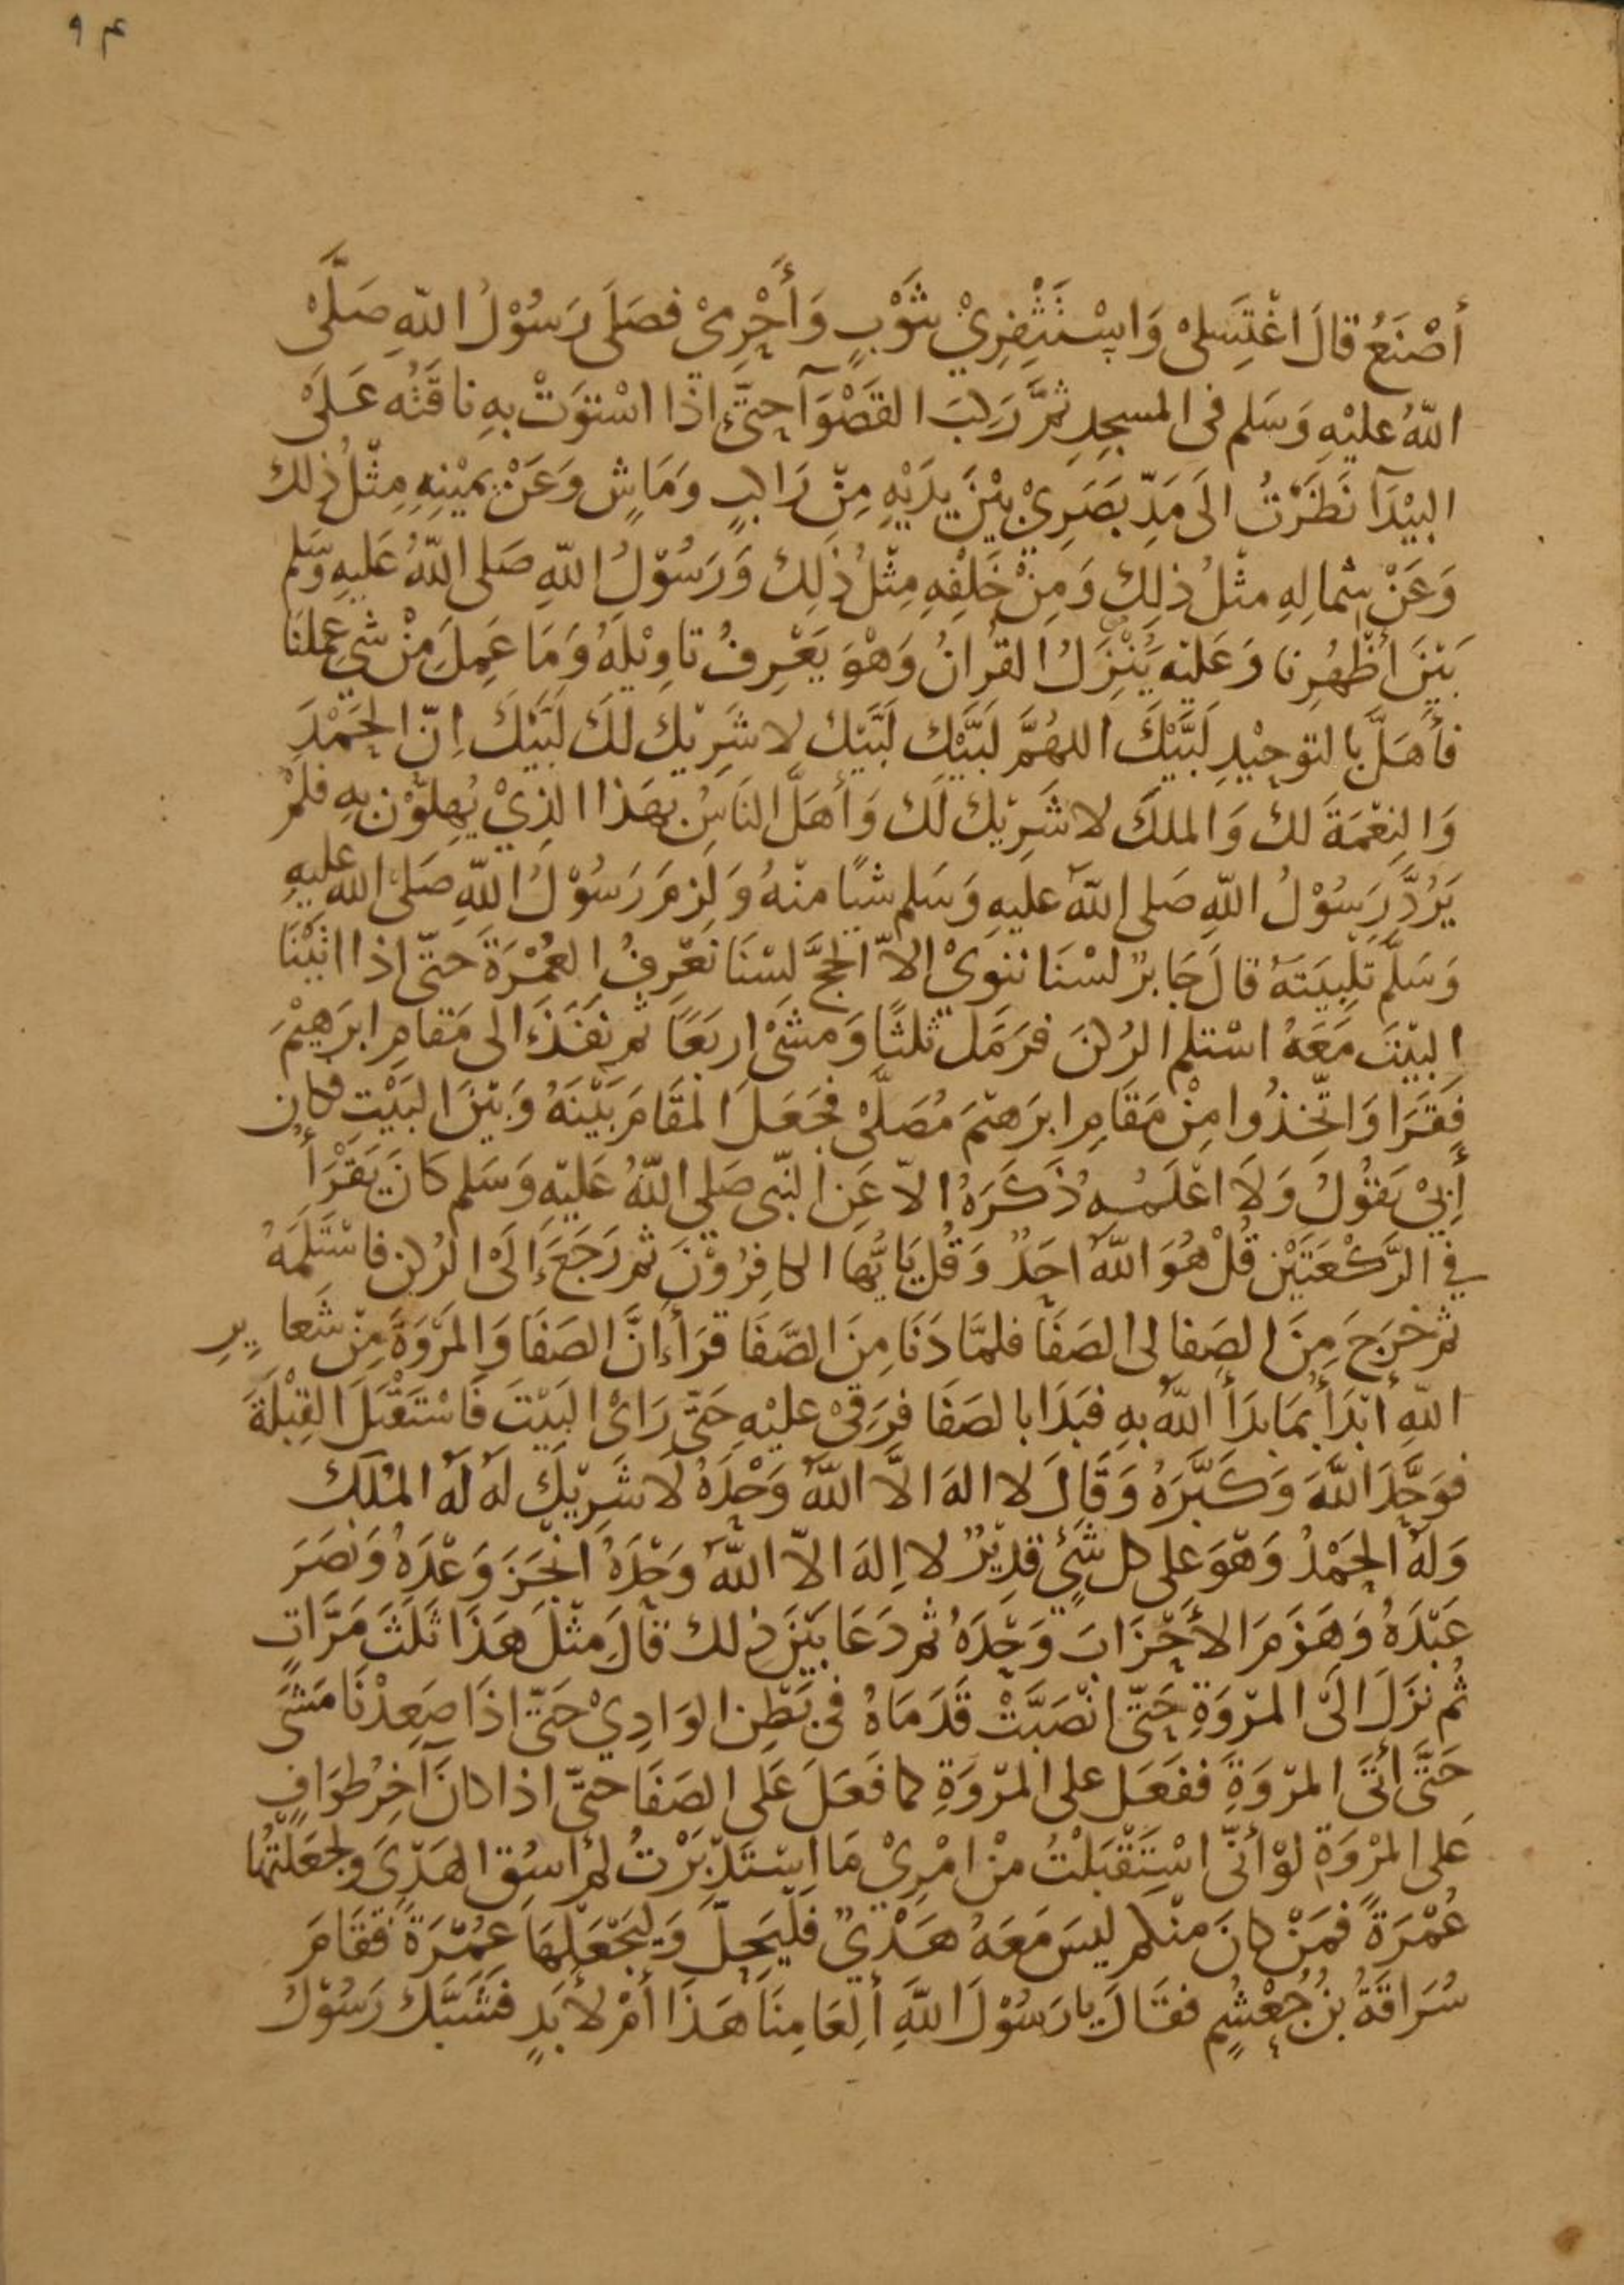 ٩٤
أَصْنَعُ قالَ اغْتَسِلِىْ وَاسْتَثْفِرِيْ بثَوْبٍ وَأَحْرِمِىْ فصَلَى رَسُوْلُ اللّهِ صَلَّىْ
اللّهُ عليْهِ وَسَلم فى المسجِدِ ثمَّ رَكِبَ القَصْوَآ حتّى اذا اسْتوَتْ بهِ ناقَتُه عَلَىْ
البيْدَآ نَظَرْتُ الَى مَدِّ بَصَرِىْ بيْنَ يدَيْهِ مِنْ رَاكبٍ وَمَاشٍ وَعَنْ يمَيْنِهِ مِثْلُ ذلك
وَعَنْ شمالِهِ مثْلُ ذلِكَ وَمِنْ خَلْفِهِ مِثْلُ ذَلِكَ وَرَسُوْلُ اللّهِ صَلى اللّهُ عَليهِ وَسَّلم
بَيْنَ أظْهُرِنا وَعَليْه يُنْزَلُ القرانُ وَهْوَ يَعْرِفُ تاوِيْلَهُ وَمَا عَمِلَ مِنْ شىٍ عملنَا
فأهَلَّ بالتوحِيْدِ لَبَّيْكَ اللهُمَّ لَبَيَّكَ لَبَّيْك لا شَرِيْك لَكَ لَبَّيْكَ اِنّ الحَمْدَ
وَالنِعْمَةَ لك وَالملكَ لا شَرِيْك لَك وَأهَلَّ النَاسُ بهَذا الذِيْ يُهِلوّنَ بهِ فلمْ
يَرُدَّ رَسُوْلُ اللّهِ صَلى اللّهُ عليهِ وَسَلم شيًا منْهُ وَلزمَ رَسُوْلُ اللّهِ صَلىْ اللّه عليهِ
وَسَلَّم تلْبِيَتَهُ قالَ جَابرٌ لسْنَا ننوىْ الاّ الحجَّ لسْنَا نَعْرِفُ العُمْرَةَ حتىّ اذا اتَيْنَا
البيْتَ مَعَهُ اسْتلم الرُكنَ فرَمَّلَ ثلثًا وَمشَىْ اربَعًا ثم نفَذَ الى مَقامِ ابرَهِيْمَ
فَقَرَا وَاتَّخذُوا مِنْ مَقَامِ ابرَهيْمَ مُصَلىَّ فجَعَلَ المَقَامَ بَيْنَهُ وَبَيْنَ البَيْتِ فكان
أبيْ يَقُولُ وَلاَ اعْلَمُه ذَكَرَهُ الاّ عَن النّبى صَلى اللّهُ عَليْهِ وَسَلم كَانَ يَقْرَأُ
فِي الرَّكْعَتَيْن قُلْ هُوَ اللّهُ احَدٌ وَقُل يَايُّهَا الكافِرُوْنَ ثم رَجَعَ إلَىْ الرُكن فاسْتَلَمَهُ
ثم خرَجَ مِنَ الصَفا لى الصَفَا فلمَّا دَنَا مِنَ الصَّفَا قرَأ إنَّ الصَفَا وَالمَرْوَةَ مِنْ شَعايرِ
اللّهِ أبْدَأُ بمَا بدَأ اللّهُ بهِ فبَدَا بالصَفَا فرَقىْ عليْهِ حَتَّى رَاىْ البَيْتَ فَاسْتَقْبَلَ القِبْلَةَ
فوَحَّدَ اللّهَ وَكَبَّرَهُ وَقَالَ لا الهَ الاَّ اللّهُ وَحْدَهُ لَا شَرِيْكَ لهُ لَهُ المُلكُ
وَلهُ الحَمْدُ وَهْوَ على كل شَيْءٍ قدِيْرٌ لا اِلهَ الاّ اللّهُ وَحْدَهُ انجَزَ وَعْدَهُ وَنَصَرَ
عَبْدَهُ وَهَزَمَ الأَحْزَابَ وَحْدَهُ ثم دَعَا بَيْنَ ذلك قالَ مثْلَ هَذَا ثلَثَ مَرَّاتٍ
ثُم نزَلَ الَىْ المرْوَةِ حَتّى انْصَبَّتْ قَدَمَاهُ فى بَطْنِ الوَادِيْ حَتىّ اذَا صَعِدْنَا مَشَىَ
حَتَّى أتَىَ المرْوَةَ ففَعَل على المرْوَةِ كما فَعَلَ عَلى الصَفَا حتىّ اذا كانَ آخِرُ طوَافٍ
عَلى المرْوَةِ لوْ أنّى اسْتَقْبَلْتُ منْ امْرِيْ مَا اسْتَدْبَرْتُ لمْ اسُقِ الهَدْىَ وَلجعَلْتُهَا
عُمْرَةً فمَنْ كانَ منْكم ليسَ مَعَهُ هَدْيٌ فلْيَحِلَّ وَليَجْعَلْهَا عُمْرَةً فقَامَ
سُرَاقَةُ بنُ جُعْشُمٍ فقَالَ يا رَسُوْلَ اللّهِ ألِعَامِنَا هَذَا أمْ لأبَدٍ فشَبَّكَ رَسُوْلُ